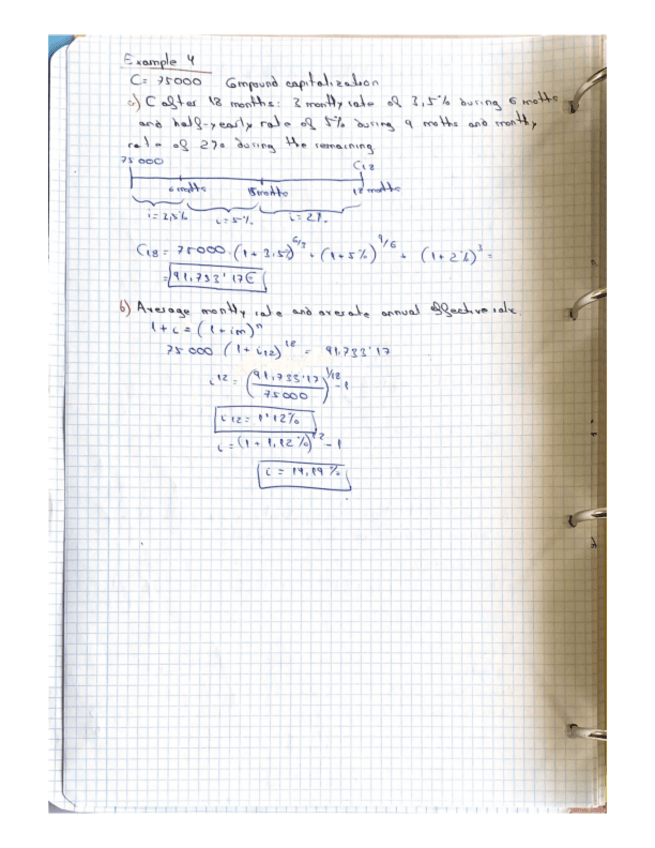 Example 4
C= 75000 Compound capitalization
a) C after 18 months: 3 montly rate of 3,5% during 6 moths
and half-yearly rate of 5% during 9 moths and monthly
rate of 2% during the remaining
75 000 C12
6 moths 15 moths 12 moths
i= 3,5% i=5% i=2%
C18 = 75000·(1+3.5)^6/3 · (1+5%)^9/6 · (1+2%)^3 =
= 91,733'17€
b) Average montly rate and averate annual effective rate.
1+i = (1+im)^n
75 000 (1+i12)^18 = 91,733'17
i12 = (91,733'17 / 75000)^1/18 -1
i12 = 1'12%
i = (1+1,12%)^12 -1
i = 14,19%